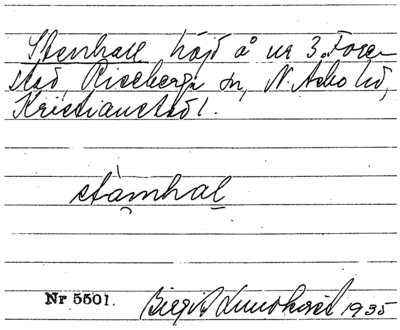 Stenhall höjd å nr 3. Fore-
stad, Riseberga sn, N. Asbo hd,
Kristianstad l.
stàmhal
Nr 5501. Birgit 1935